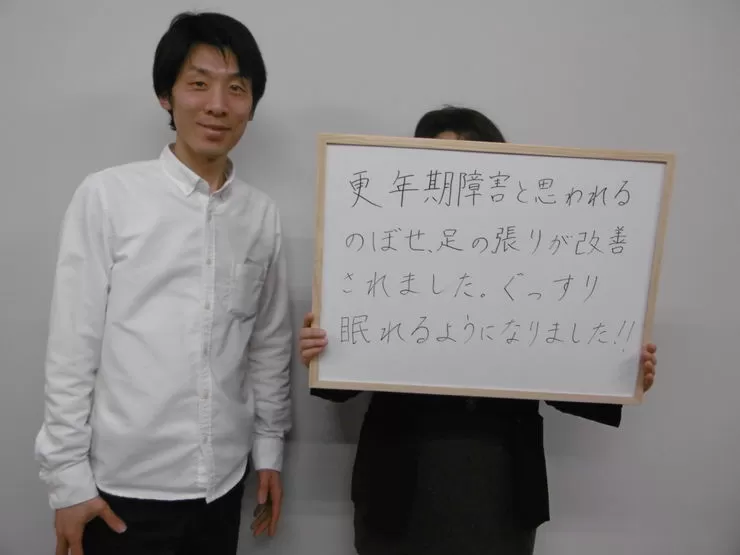 更年期障害と思われる
のぼせ、足の張りが改善
されました。ぐっすり
眠れるようになりました!!